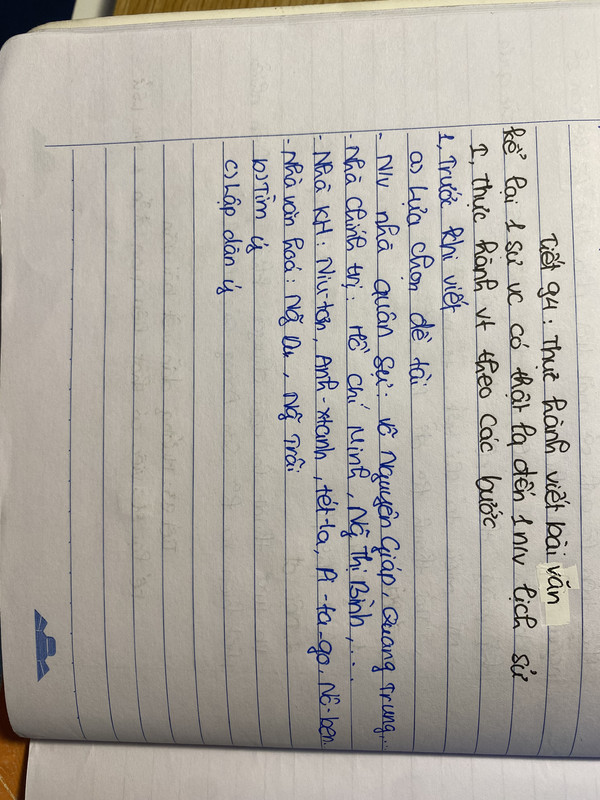 Tiết 94: Thực hành viết bài văn
kể lại 1 sự vc có thật lq đến 1 nv lịch sử
I, Thực hành vt theo các bước
1, Trước khi viết
a) Lựa chọn đề tài
- Nv nhà quân sự: Võ Nguyên Giáp, Quang Trung,..
- Nhà chính trị: Hồ Chí Minh, Ng̃ Thị Bình,...
- Nhà KH: Niu-tơn, Anh-xtanh, tét-la, Pi-ta-go, Nô-ben.
- Nhà văn hoá: Ng̃ Du, Ng̃ Trãi
b) Tìm ý
c) Lập dàn ý